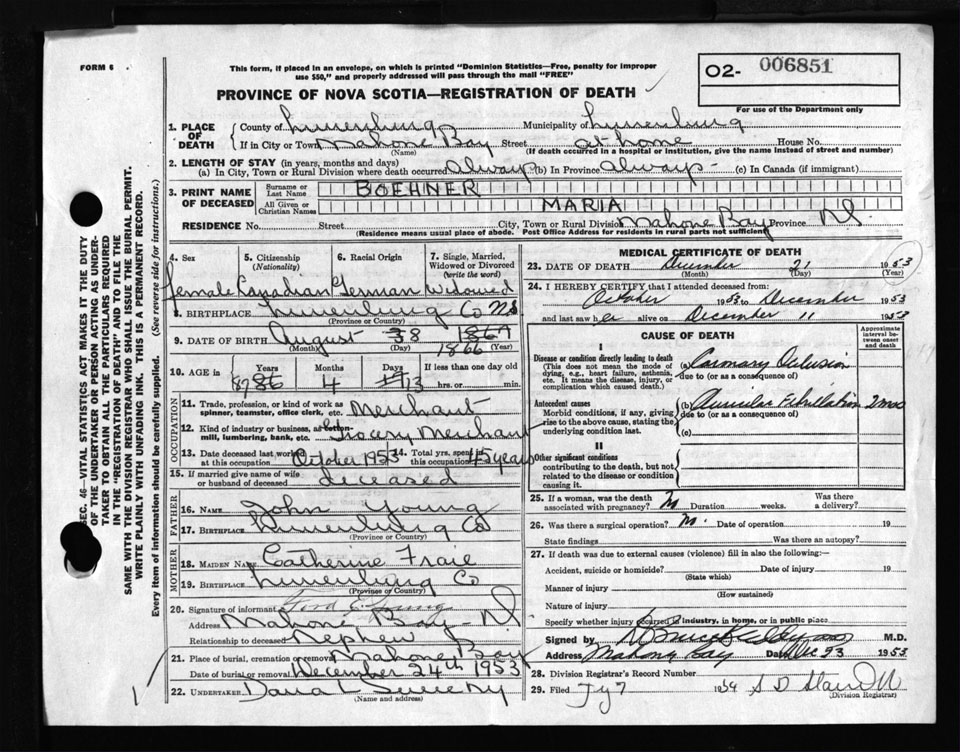 FORM 6
This form, if placed in an envelope, on which is printed "Dominion Statistics—Free, penalty for improper
use $50," and properly addressed will pass through the mail "FREE"
O2- 006851
For use of the Department only
PROVINCE OF NOVA SCOTIA—REGISTRATION OF DEATH
1. PLACE OF DEATH { County of Lunenburg Municipality of Lunenburg
If in City or Town Mahone Bay Street at home House No.
(Name) (If death occurred in a hospital or institution, give the name instead of street and number)
2. LENGTH OF STAY (in years, months and days)
(a) In City, Town or Rural Division where death occurred always (b) In Province always (c) In Canada (if immigrant)
3. PRINT NAME OF DECEASED { Surname or Last Name BOEHNER
All Given or Christian Names MARIA
RESIDENCE No. Street City, Town or Rural Division Mahone Bay Province N.S.
(Residence means usual place of abode. Post Office Address for residents in rural parts not sufficient)
4. Sex 5. Citizenship (Nationality) 6. Racial Origin 7. Single, Married, Widowed or Divorced (write the word)
female Canadian German Widowed
8. BIRTHPLACE Lunenburg Co NS
(Province or Country)
9. DATE OF BIRTH August 8 1867
(Month) (Day) 1866 (Year)
10. AGE in Years Months Days If less than one day old
87 86 4 13 hrs. or min.
OCCUPATION
11. Trade, profession, or kind of work as spinner, teamster, office clerk, etc. Merchant
12. Kind of industry or business, as cotton-mill, lumbering, bank, etc. Grocery Merchant
13. Date deceased last worked at this occupation October 1953 14. Total yrs. spent this occupation 45 years
15. If married give name of wife or husband of deceased deceased
FATHER
16. Name John Young
17. BIRTHPLACE Lunenburg Co
(Province or Country)
MOTHER
18. MAIDEN NAME Catherine
19. BIRTHPLACE Lunenburg Co
(Province or Country)
20. Signature of informant Young
Address Mahone Bay NS
Relationship to deceased Nephew
21. Place of burial, cremation or removal Mahone Bay
Date of burial or removal December 24th 1953
22. UNDERTAKER Dana L Sweeny
(Name and address)
MEDICAL CERTIFICATE OF DEATH
23. DATE OF DEATH December 21 1953
(Month) (Day) (Year)
24. I HEREBY CERTIFY that I attended deceased from:
October 1953 to December 1953
and last saw her alive on December 11 1953
CAUSE OF DEATH
Approximate interval between onset and death
I
Disease or condition directly leading to death
(This does not mean the mode of dying, e.g., heart failure, asthenia, etc. It means the disease, injury, or complication which caused death.)
(a) Coronary Oclusion
due to (or as a consequence of)
Antecedent causes
Morbid conditions, if any, giving rise to the above cause, stating the underlying condition last.
(b) Auricular Fibrillation 2 mos
due to (or as a consequence of)
(c)
II
Other significant conditions
contributing to the death, but not related to the disease or condition causing it.
25. If a woman, was the death associated with pregnancy? No Duration weeks. Was there a delivery?
26. Was there a surgical operation? No. Date of operation 19
State findings Was there an autopsy?
27. If death was due to external causes (violence) fill in also the following:—
Accident, suicide or homicide? Date of injury 19
(State which)
Manner of injury
(How sustained)
Nature of injury
Specify whether injury occurred in industry, in home, or in public place
Signed by M.D.
Address Mahone Bay Date Dec 23 1953
28. Division Registrar's Record Number
29. Filed 7 1954
(Division Registrar)
SEC. 46—VITAL STATISTICS ACT MAKES IT THE DUTY
OF THE UNDERTAKER OR PERSON ACTING AS UNDER-
TAKER TO OBTAIN ALL THE PARTICULARS REQUIRED
IN THE "REGISTRATION OF DEATH" AND TO FILE THE
SAME WITH THE DIVISION REGISTRAR WHO SHALL ISSUE THE BURIAL PERMIT.
WRITE PLAINLY WITH UNFADING INK. THIS IS A PERMANENT RECORD.
Every item of information should be carefully supplied. (See reverse side for instructions.)